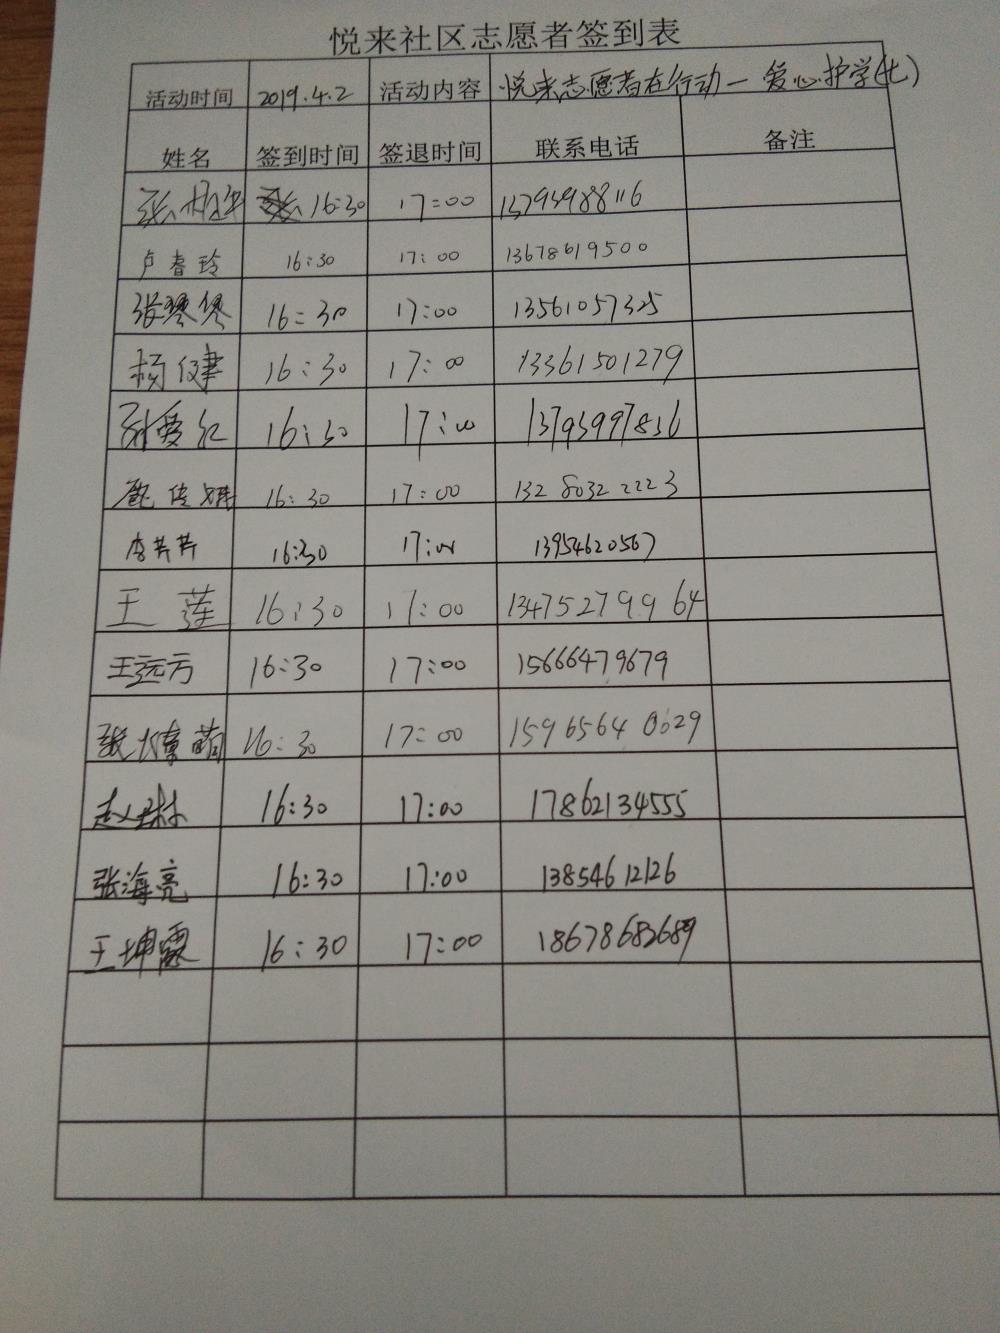 悦来社区志愿者签到表
活动时间 2019.4.2 活动内容 悦来志愿者在行动一爱心护学(七)
姓名 签到时间 签退时间 联系电话 备注
张 16:30 17:00 13793988116
卢春玲 16:30 17:00 13678619500
张琴琴 16:30 17:00 13561057325
杨健 16:30 17:00 13361501279
爱红 16:30 17:00 13793997836
传 16:30 17:00 132 8032 2223
李芹芹 16:30 17:00 13954620567
王莲 16:30 17:00 13475279964
王远方 16:30 17:00 15666479679
张 萌 16:30 17:00 1596564 0629
赵琳 16:30 17:00 17862134555
张海亮 16:30 17:00 13854612126
王坤霞 16:30 17:00 18678682689